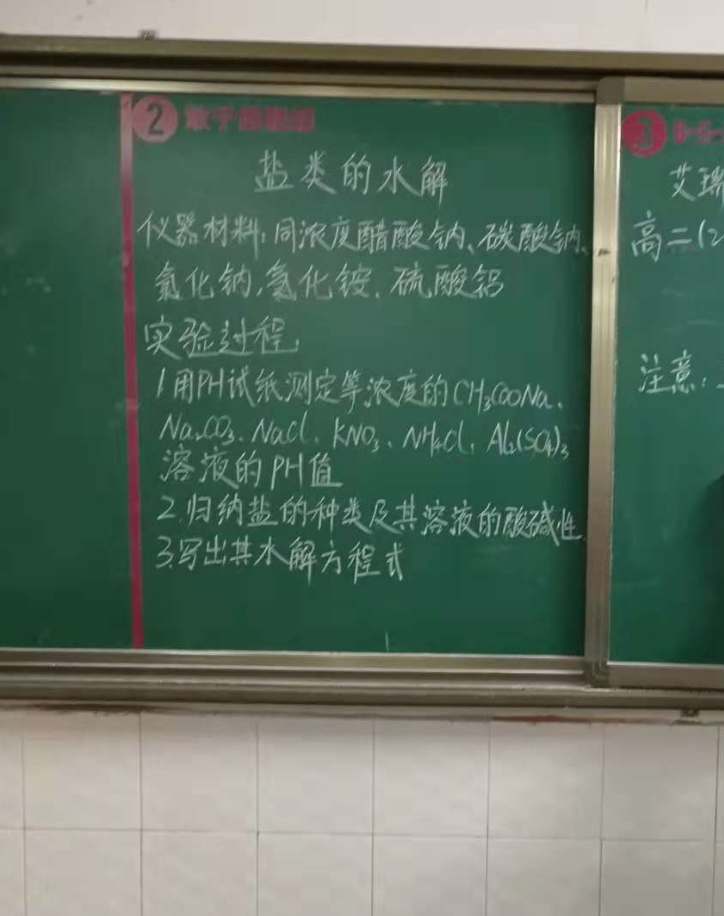 2
3
盐类的水解
仪器材料：同浓度醋酸钠、碳酸钠、
氯化钠、氯化铵、硫酸铝
实验过程
1用PH试纸测定等浓度的CH₃COONa、
Na₂CO₃、NaCl、KNO₃、NH₄Cl、Al₂(SO₄)₃
溶液的PH值
2.归纳盐的种类及其溶液的酸碱性
3.写出其水解方程式
艾瑞
高二(2
注意：